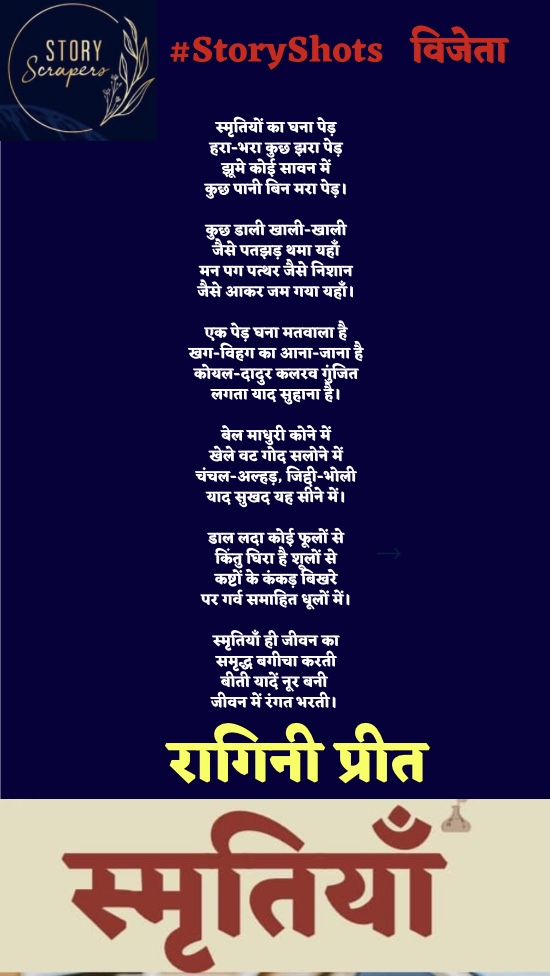 STORY
Scrapers
#StoryShots विजेता
स्मृतियों का घना पेड़
हरा-भरा कुछ झरा पेड़
झूमे कोई सावन में
कुछ पानी बिन मरा पेड़।
कुछ डाली खाली-खाली
जैसे पतझड़ थमा यहाँ
मन पग पत्थर जैसे निशान
जैसे आकर जम गया यहाँ।
एक पेड़ घना मतवाला है
खग-विहग का आना-जाना है
कोयल-दादुर कलरव गुंजित
लगता याद सुहाना है।
बेल माधुरी कोने में
खेले वट गोद सलोने में
चंचल-अल्हड़, जिद्दी-भोली
याद सुखद यह सीने में।
डाल लदा कोई फूलों से
किंतु घिरा है शूलों से
कष्टों के कंकड़ बिखरे
पर गर्व समाहित धूलों में।
स्मृतियाँ ही जीवन का
समृद्ध बगीचा करती
बीती यादें नूर बनी
जीवन में रंगत भरती।
रागिनी प्रीत
स्मृतियाँ